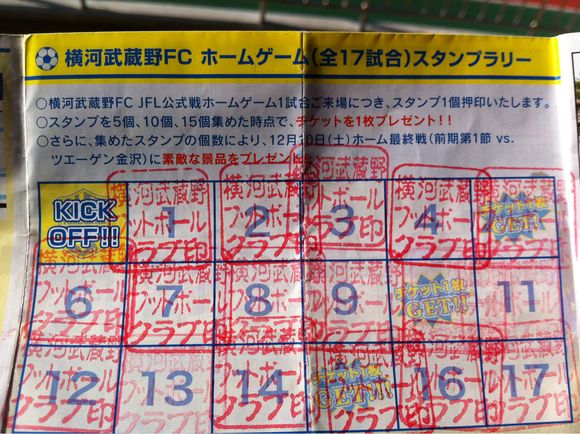 横河武蔵野FC ホームゲーム(全17試合)スタンプラリー
○横河武蔵野FC JFL公式戦ホームゲーム1試合ご来場につき、スタンプ1個押印いたします。
○スタンプを5個、10個、15個集めた時点で、チケットを1枚プレゼント!!
○さらに、集めたスタンプの個数により、12月10日(土)ホーム最終戦(前期第1節 vs.
ツエーゲン金沢)に素敵な景品をプレゼント
KICK OFF!! 1 2 3 4 チケット1枚 GET!!
6 7 8 9 チケット1枚 GET!! 11
12 13 14 チケット1枚 GET!! 16 17
横河武蔵野
フットボール
クラブ印